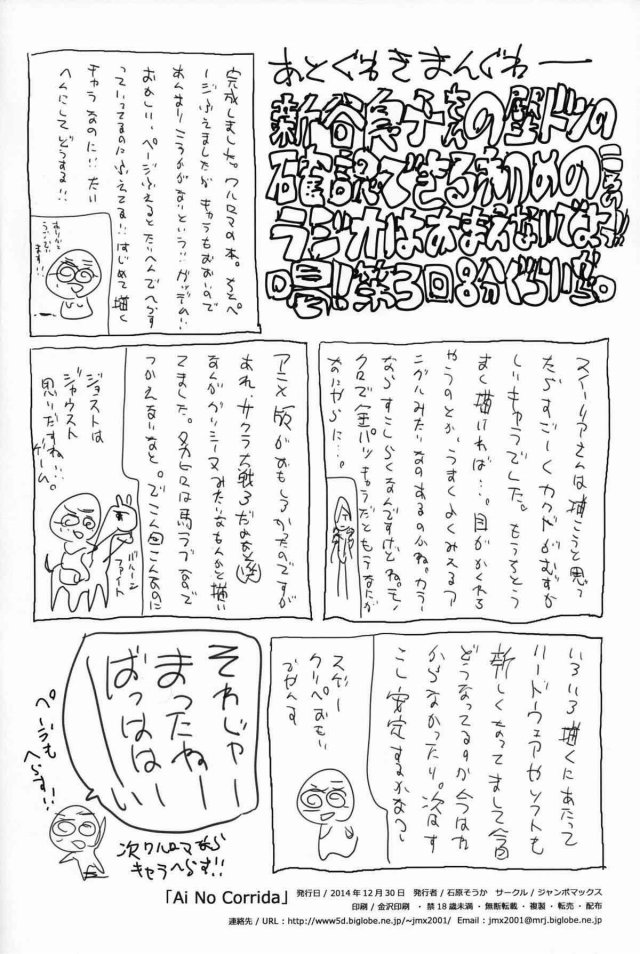 あとぐわきまんぐわー
新谷良子さんの壁ドンの
確認できる初めの
ラジオはあまえないでよっ!!
喝!!第3回8分ぐらい。
完成しました。クルロマの本。ちとペ
ージふえましたが キャラもおおいので
あんまりこうかがないという!! ガッデム!!
おかしい、ページふえるとたいへんでへらす
っていってるのにふえてる!! はじめて描く
キャラなのに!! たい
へんにしてどうする!!
ありがとう
ござい
ます!!
スイーリアさんは描こうと思っ
たらすごーくカクドがむずか
しいキャラでした。もうちとう
まく描ければ…。目がかくれる
やつのとか、うすくよくみえるア
ングルみたいなのあるのかね。カラー
ならすこしらくなんですけどね。モノ
クロで金パツキャラだともうなにが
なにやらに…。
アニメ版がおもしろかったのですが
あれ、サクラ大戦3だよね(笑)
なんかグリシーヌみたいなもんかと描い
てました。タカヒロは馬ラブなので
つかえないなと。でこん回こんなのに
ジョストは
ジャウスト
思いだすね…
ゲーム。
バルーン
ファイト
いろいろ描くにあたって
ハードウェアやソフトも
新しくなってまして今回
どうなってるか今はわ
からなかったり。次はす
こし安定するかなっ〜
スゲー
クリペおもい
でやんす
それじゃー
まったねー
ばっははーい
ページも
へらす!!
次クルロマなら
キャラへらす!!
「Ai No Corrida」 発行日 / 2014年12月30日　発行者 / 石原そうか　サークル / ジャンボマックス
印刷 / 金沢印刷　・禁18歳未満・無断転載・複製・転売・配布
連絡先 / URL : http://www5d.biglobe.ne.jp/~jmx2001/　Email : jmx2001@mrj.biglobe.ne.jp